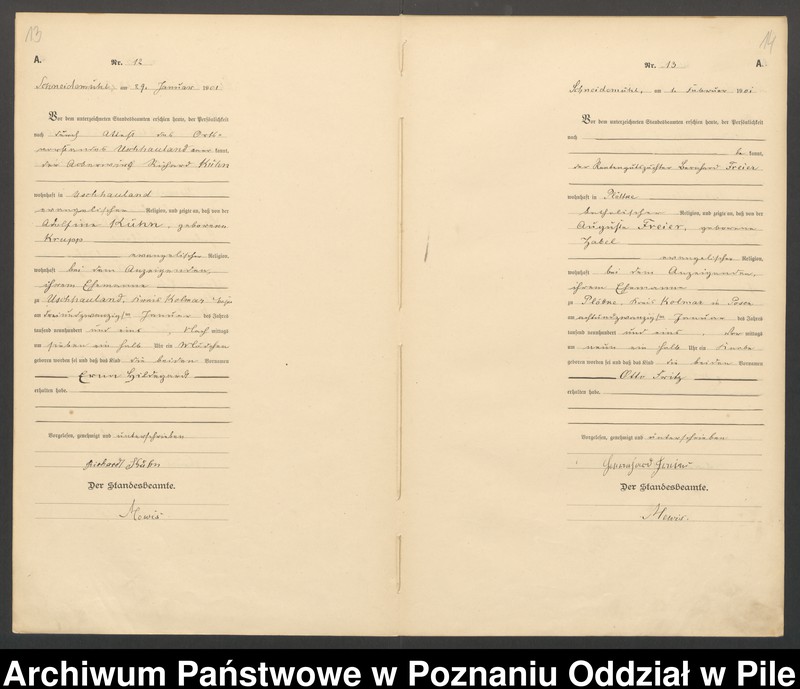 13
A.
Nr. 12
Schneidemühl, am 29. Januar 1901
Vor dem unterzeichneten Standesbeamten erschien heute, der Persönlichkeit
nach durch Attest des Orts-
vorstandes Uschhauland aner kannt,
der Ackerwirth Richard Kühn
wohnhaft in Uschhauland
evangelischer Religion, und zeigte an, daß von der
Adolfine Kühn, geborene
Krupp
evangelischer Religion,
wohnhaft bei dem Anzeigenden,
ihrem Ehemanne
zu Uschhauland, Kreis Kolmar
am dreiundzwanzigsten Januar des Jahres
tausend neunhundert und eins, Nach mittags
um sieben ein halb Uhr ein Mädchen
geboren worden sei und daß das Kind die beiden Vornamen
Erna Hildegard
erhalten habe.
Vorgelesen, genehmigt und unterschrieben
Richard Kühn
Der Standesbeamte.
Mewis
14
Nr. 13
A.
Schneidemühl, am 1. Februar 1901
Vor dem unterzeichneten Standesbeamten erschien heute, der Persönlichkeit
nach
be kannt,
der Rentengutspächter Bernhard Freier
wohnhaft in
katholischer Religion, und zeigte an, daß von der
Auguste Freier, geborene
Zabel
evangelischer Religion,
wohnhaft bei dem Anzeigenden,
ihrem Ehemanne
zu Plöttke, Kreis Kolmar in Posen
am achtundzwanzigsten Januar des Jahres
tausend neunhundert und eins, Vor mittags
um neun ein halb Uhr ein Knabe
geboren worden sei und daß das Kind die beiden Vornamen
Otto Fritz
erhalten habe.
Vorgelesen, genehmigt und unterschrieben
Bernhard Freier
Der Standesbeamte.
Mewis.
Archiwum Państwowe w Poznaniu Oddział w Pile